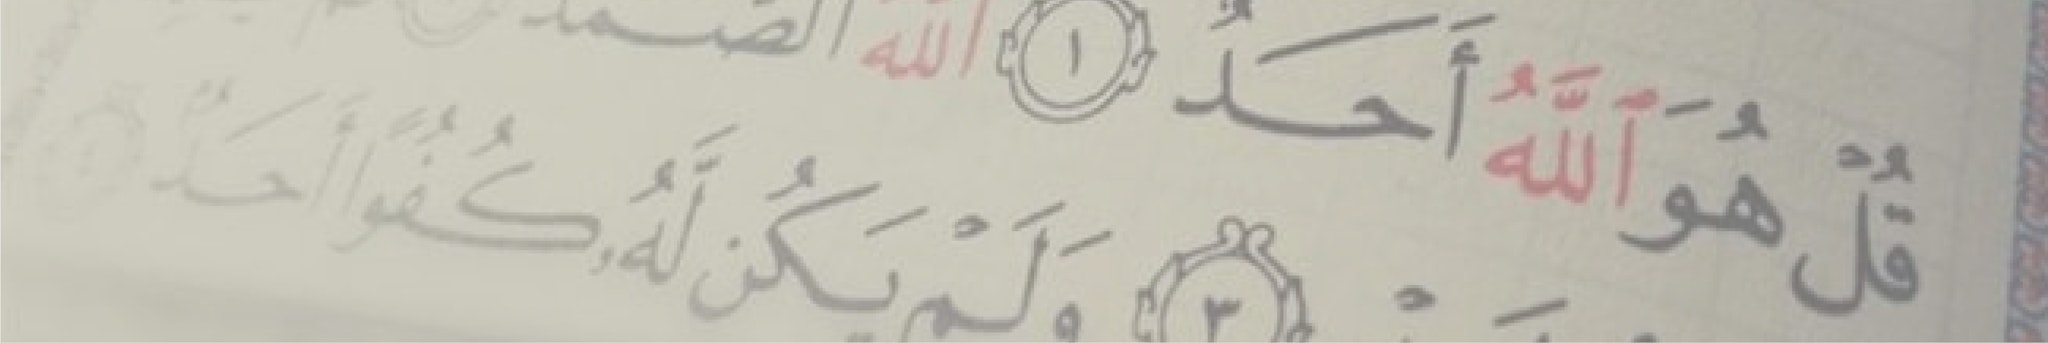 قُلْ هُوَ ٱللَّهُ أَحَدٌ ١ ٱللَّهُ الصَّمَدُ
٣ وَلَمْ يَكُن لَّهُۥ كُفُوًا أَحَدٌ